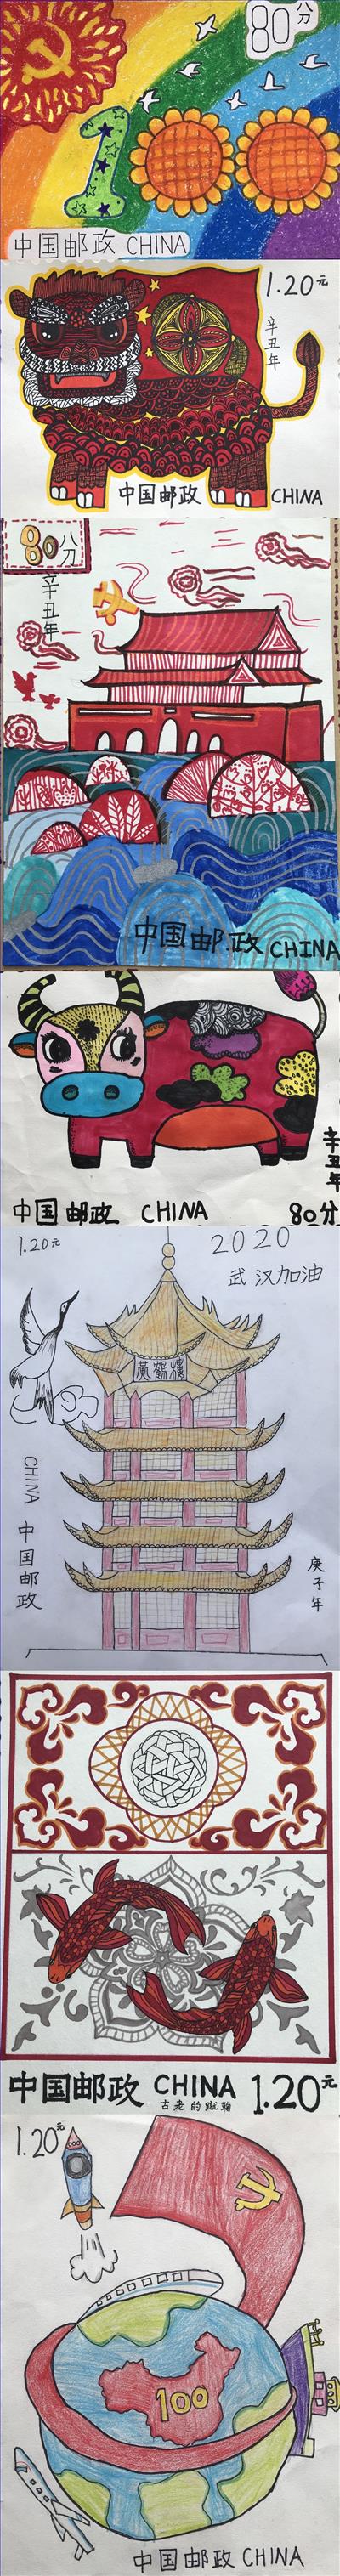 80分
100
中国邮政 CHINA
1.20元
辛丑年
中国邮政 CHINA
80分
辛丑年
中国邮政 CHINA
辛丑年
中国邮政 CHINA 80分
1.20元
2020
武汉加油
黄鹤楼
CHINA 中国邮政
庚子年
中国邮政 CHINA 1.20元
古老的蹴鞠
1.20元
100
中国邮政 CHINA